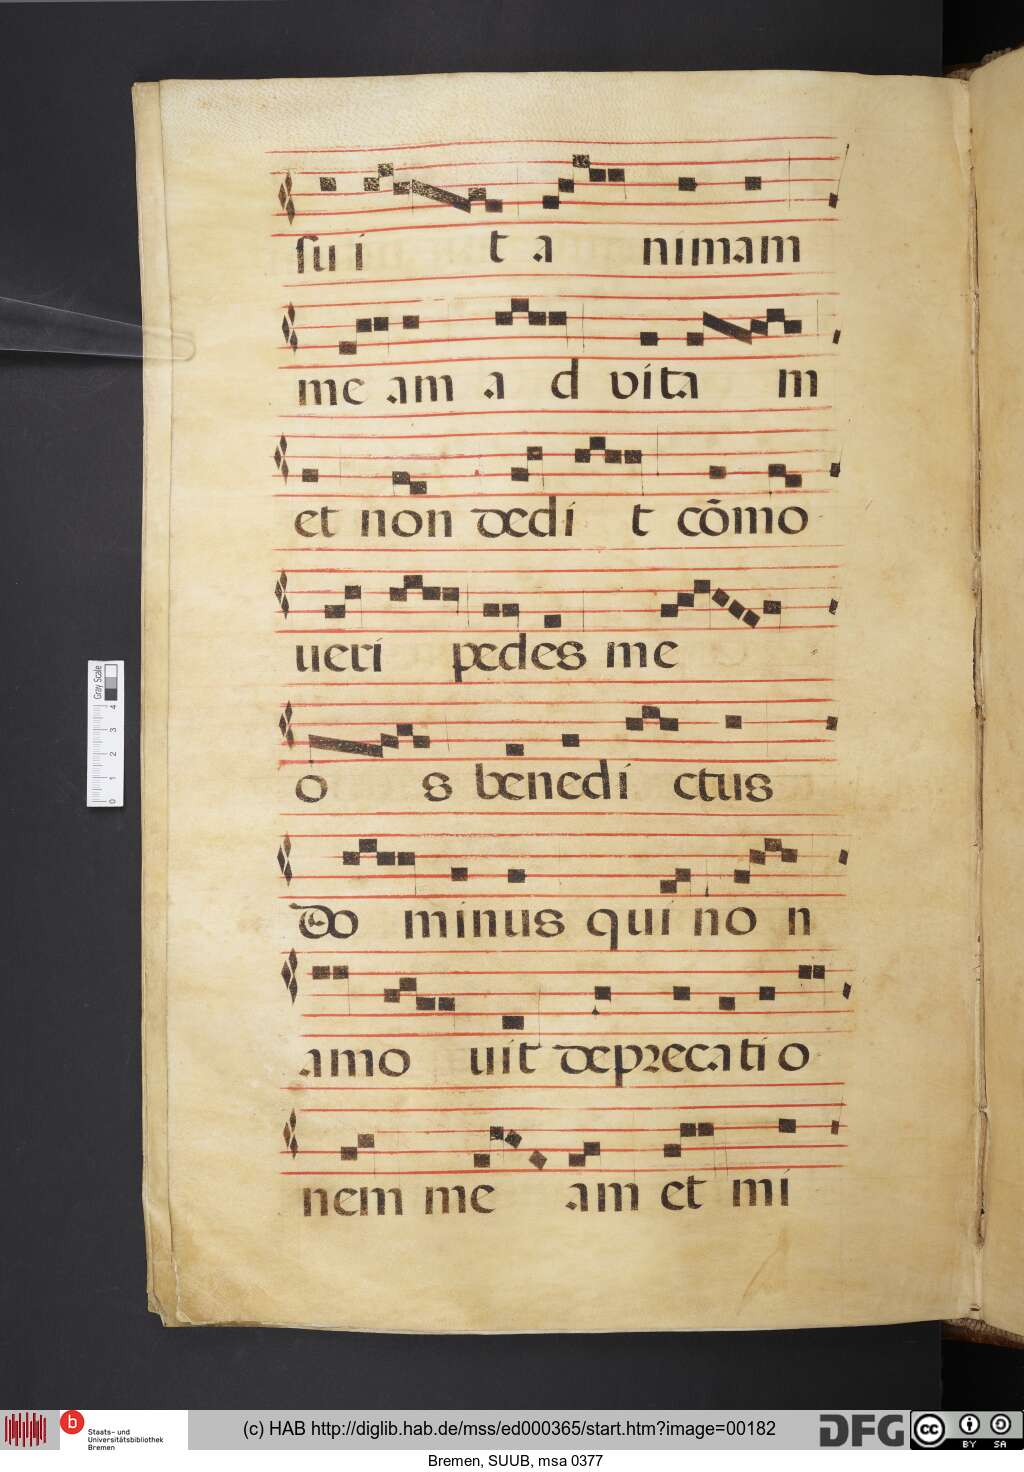 sui t a nimam
me am a d vita m
et non dedi t cōmo
ueri pedes me
o s benedi ctus
do minus qui no n
amo uit deprecati o
nem me am et mi
Gray Scale
0 1 2 3 4
b
Staats- und
Universitätsbibliothek
Bremen
(c) HAB http://diglib.hab.de/mss/ed000365/start.htm?image=00182
DFG
cc BY SA
Bremen, SUUB, msa 0377